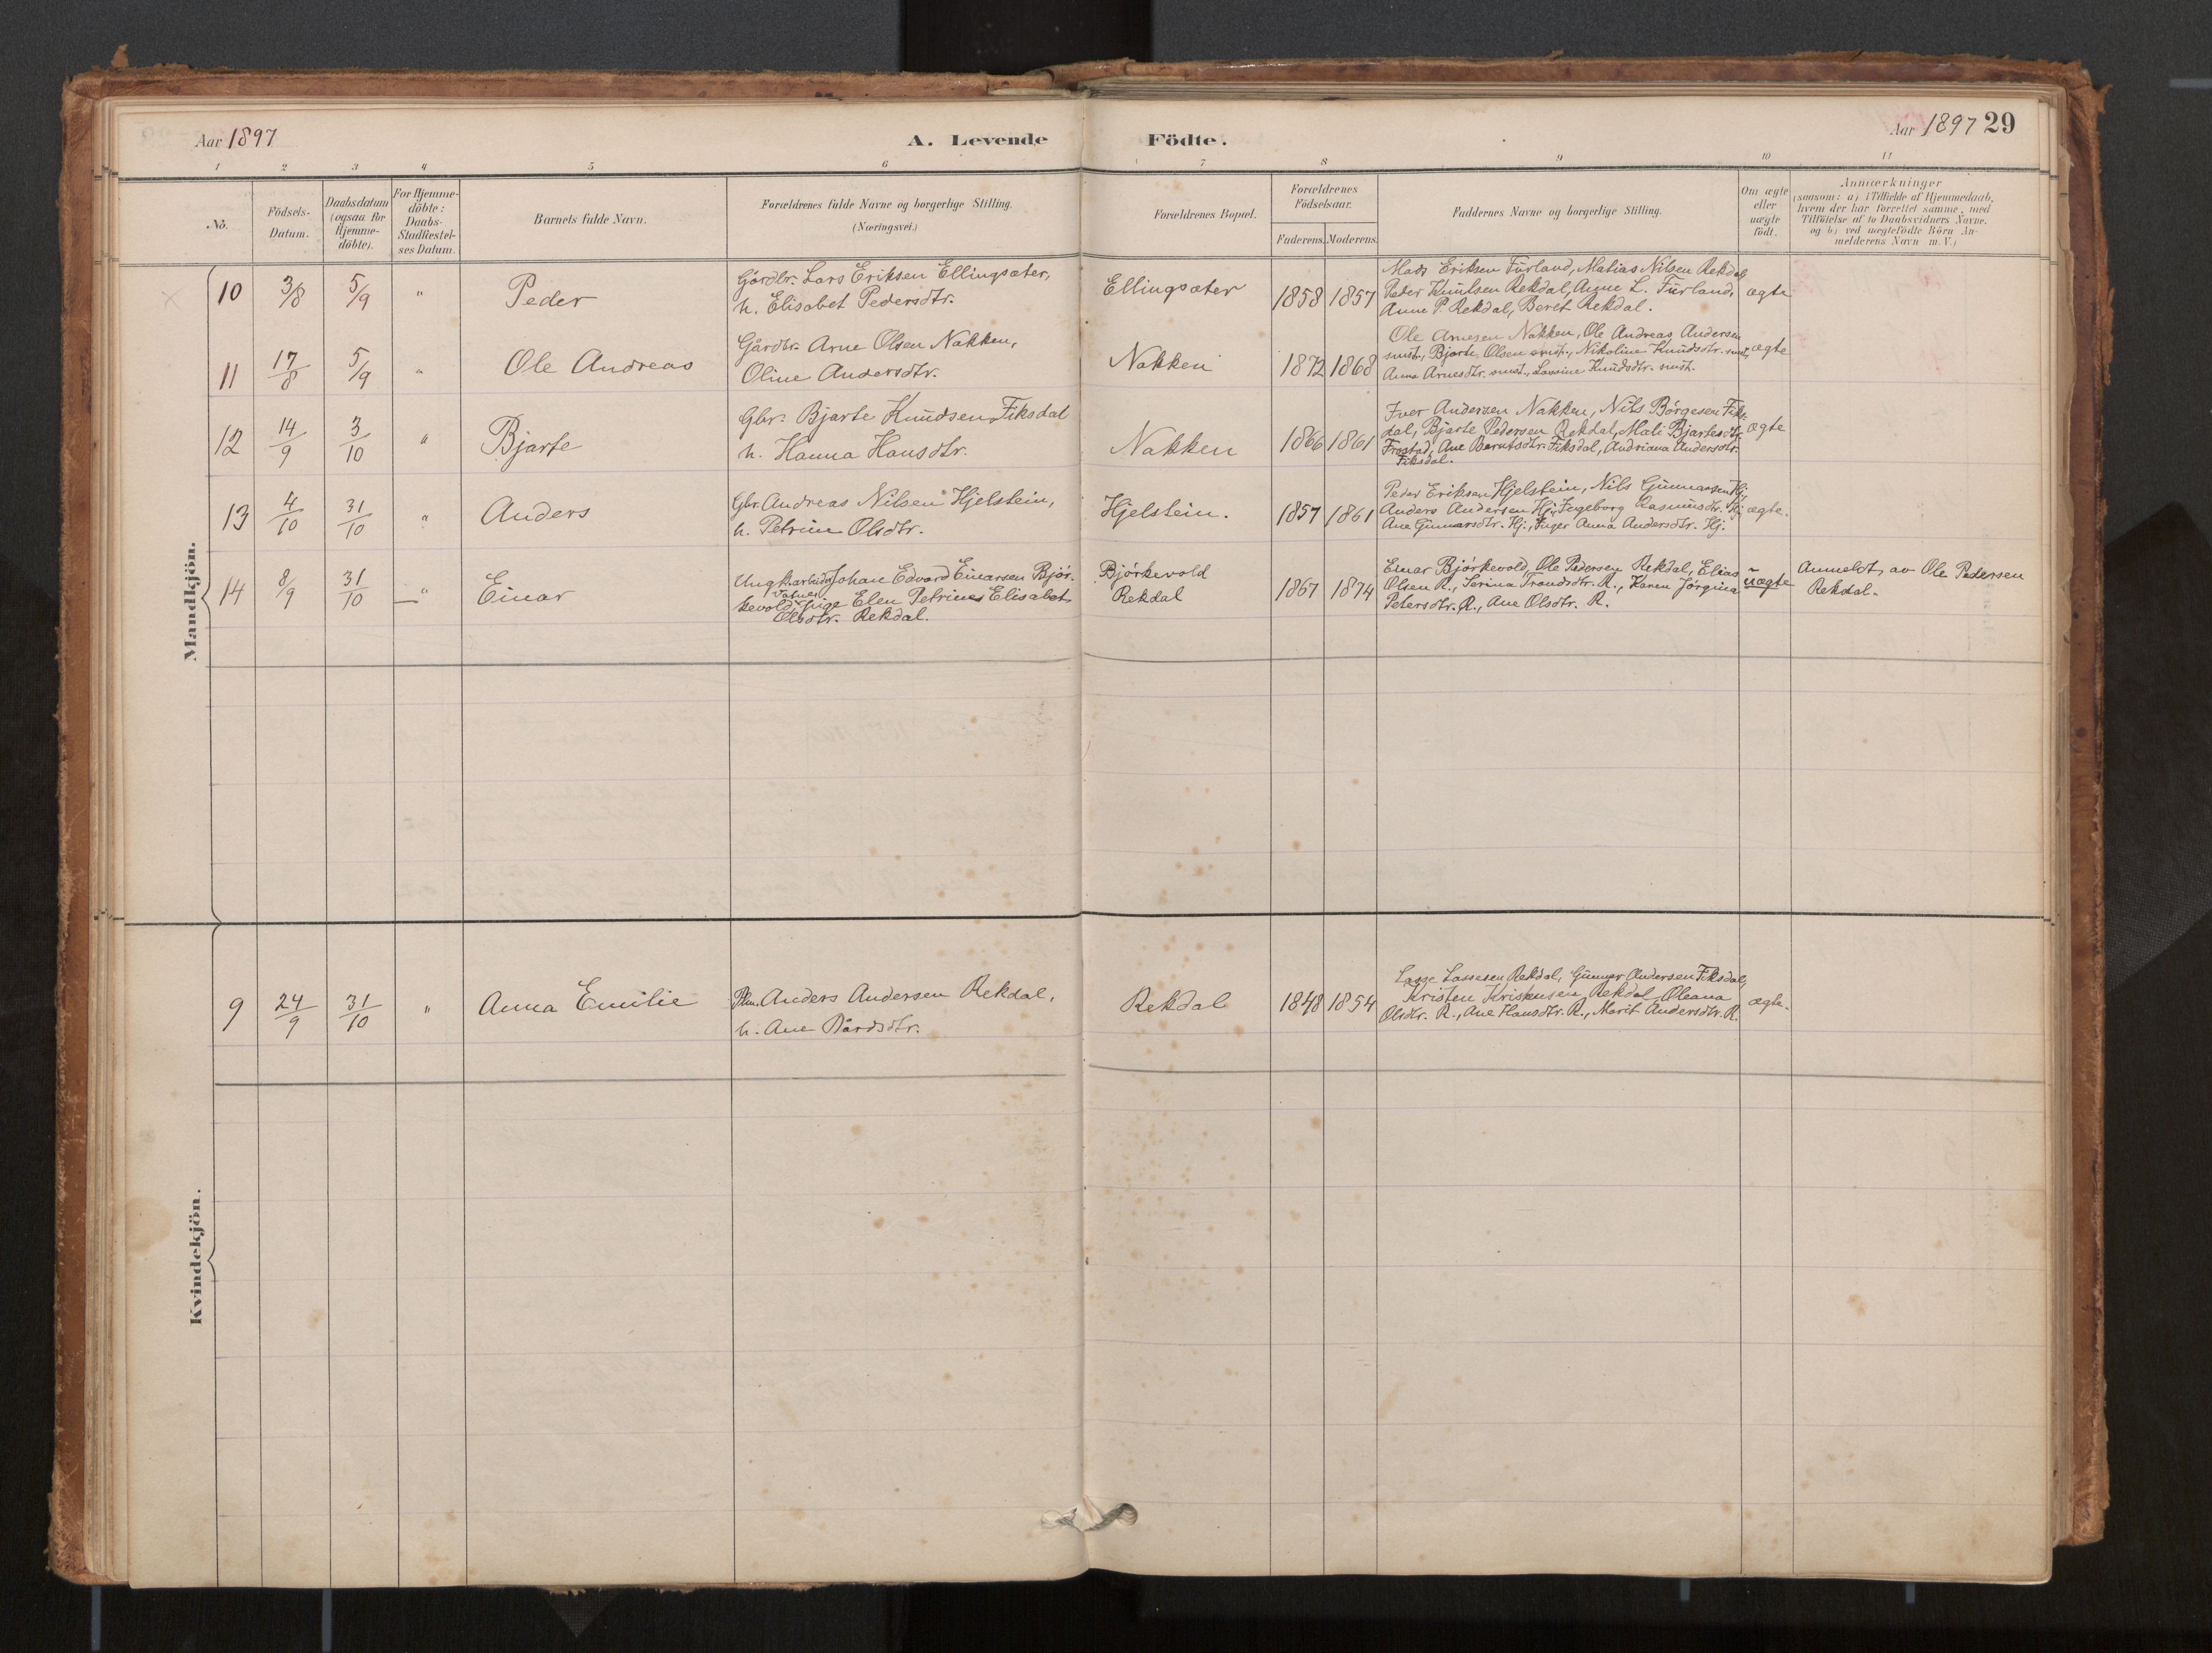 Aar 1897
A. Levende Födte.
Aar 1897 29
1 2 3 4 5 6 7 8 9 10 11
No.
Födsels-Datum.
Daabsdatum (ogsaa for Hjemme-döbte).
For Hjemme-döbte: Daabs-Stadfæstel-ses Datum.
Barnets fulde Navn.
Forældrenes fulde Navne og borgerlige Stilling. (Næringsvei.)
Forældrenes Bopæl.
Forældrenes Födselsaar.
Faderens. Moderens.
Faddernes Navne og borgerlige Stilling.
Om ægte eller uægte födt.
Anmærkninger
(saasom: a) i Tilfælde af Hjemmedaab,
hvem der har forrettet samme, med
Tilföielse af to Daabsvidners Navne.
og b) ved uægtefödte Börn An-
melderens Navn m.V.)
Mandkjön.
10 3/8 5/9 " Peder
Gårdbr. Lars Eriksen Ellingsæter,
h. Elisabet Pedersdtr.
Ellingsæter 1858 1857
Mads Eriksen Furland, Matias Nilsen Rekdal
Peder Knutsen Rekdal, Anne L. Furland,
Anne P. Rekdal, Beret Rekdal.
ægte
11 17/8 5/9 " Ole Andreas
Gårdbr. Arne Olsen Nakken,
Oline Andersdtr.
Nakken 1872 1868
Ole Arnesen Nakken, Ole Andreas Andersen
smst., Bjarte Olsen smst., Nikoline Knudsdtr. smst,
Anna Arnesdtr. smst., Lassine Knudsdtr. smst.
ægte
12 14/9 3/10 " Bjarte
Gbr. Bjarte Knudsen Fiksdal
h. Hanna Hansdtr.
Nakken 1866 1861
Iver Andersen Nakken, Nils Börgesen Fiks-
dal, Bjarte Pedersen Rekdal, Mali Bjartesdtr.
Frostad, Ane Berntsdtr. Fiksdal, Andriana Andersdtr.
Fiksdal.
ægte
13 4/10 31/10 " Anders
Gbr. Andreas Nilsen Hjelstein,
h. Petrine Olsdtr.
Hjelstein. 1857 1861
Peder Eriksen Hjelstein, Nils Gunnarsen Hj,
Anders Andersen Hj, Ingeborg Rasmusdtr. Hj
Ane Gunnarsdtr. Hj., Inger Anna Andersdtr. Hj.
ægte.
14 8/9 31/10 " Einar
Ungk. arbeider Johan Edvard Einarsen Björ-
kevold, pige Elen Petrine Elisabet
Olsdtr. Rekdal.
Björkevold
Rekdal
1867 1874
Einar Björkevold, Ole Pedersen Rekdal, Elias
Olsen R., Serina Trondsdtr. R., Karen Jörgina
Petersdtr. R., Ane Olsdtr. R.
uægte
Anmeldt av Ole Pedersen
Rekdal.
Kvindekjön.
9 24/9 31/10 " Anna Emilie
Anders Andersen Rekdal,
h. Ane Bårdsdtr.
Rekdal 1848 1854
Lasse Lassesen Rekdal, Gunnar Andersen Fiksdal,
Kristen Kristensen Rekdal, Oleana
Olsdtr. R., Ane Hansdtr. R., Marit Andersdtr. R.
ægte.